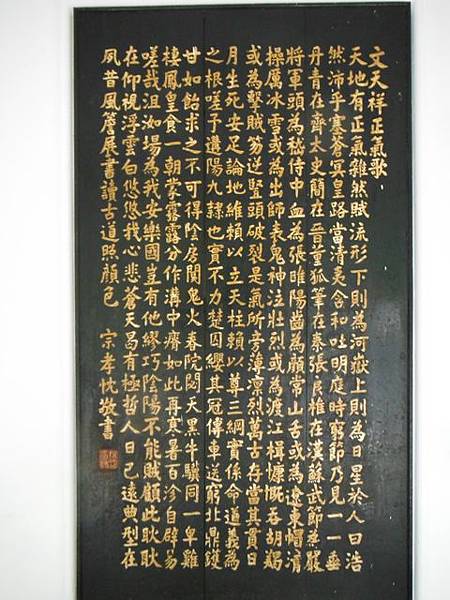 文天祥正氣歌、
天地有正氣雜然賦流形下則為河嶽上則為日星於人曰浩
然沛乎塞蒼冥皇路當清夷含和吐明庭時窮節乃見一一垂
丹青在齊太史簡在晉董狐筆在秦張良椎在漢蘇武節為嚴
將軍頭為嵇侍中血為張睢陽齒為顏常山舌或為遼東帽清
操厲冰雪或為出師表鬼神泣壯烈或為渡江楫慷慨吞胡羯
或為擊賊笏逆豎頭破裂是氣所旁薄凜烈萬古存當其貫日
月生死安足論地維賴以立天柱賴以尊三綱實係命道義為
之根嗟予遘陽九隸也實不力楚囚纓其冠傳車送窮北鼎鑊
甘如飴求之不可得陰房闃鬼火春院閟天黑牛驥同一皁雞
棲鳳皇食一朝蒙霧露分作溝中瘠如此再寒暑百沴自辟易
嗟哉沮洳場為我安樂國豈有他繆巧陰陽不能賊顧此耿耿
在仰視浮雲白悠悠我心悲蒼天曷有極哲人日已遠典型在
夙昔風簷展書讀古道照顏色 宗孝忱敬書